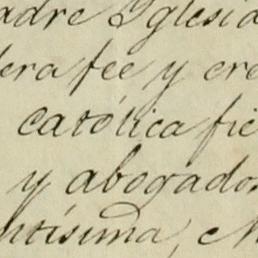 adre Iglesia
era fee y cre
católica fie
y abogado
ntísima, M